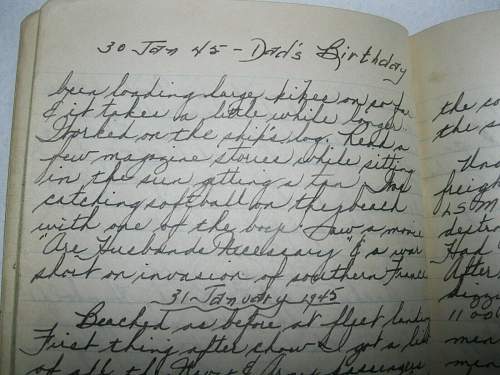 30 Jan 45 - Dad's Birthday
been loading large pipes on so far
& it takes a little while longer.
Worked on the ship's log. Read a
few magazine stories while sitting
in the sun getting a tan. Im
catching softball on the beach
with one of the boys. Saw a movie
"Are Husbands Necessary" & a war
short on invasion of southern France
31 January 1945
Beached as before at
First thing after chow I got a
of all the passengers
the so
the s
Un
freigh
LSM
destro
Had
After
dizzy
1100
men
men